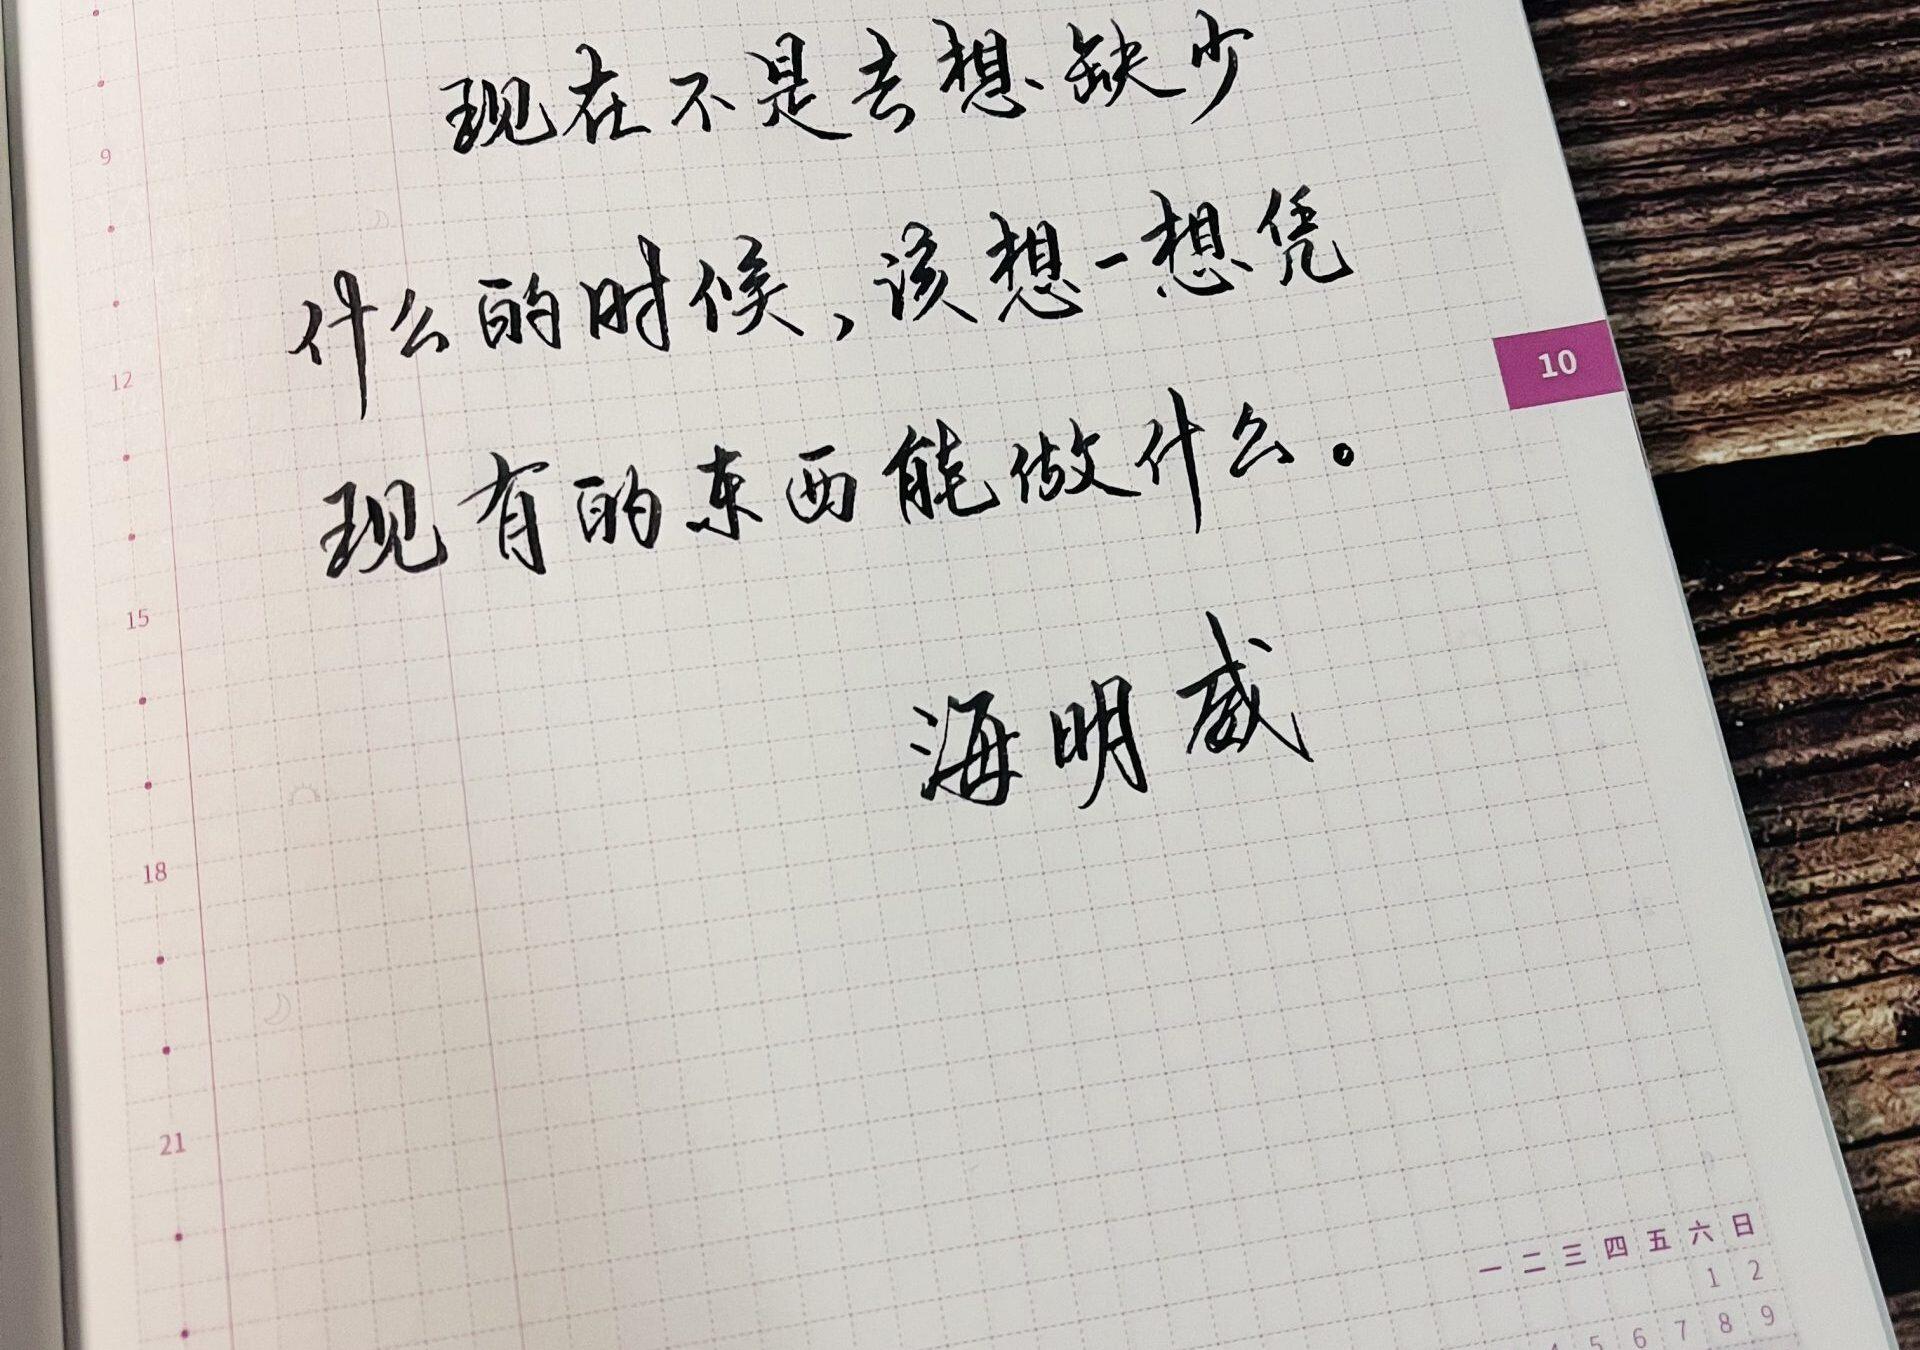 现在不是去想缺少
什么的时候，该想一想凭
现有的东西能做什么。
海明威
9
12
15
18
21
10
一 二 三 四 五 六 日
1 2
5 6 7 8 9